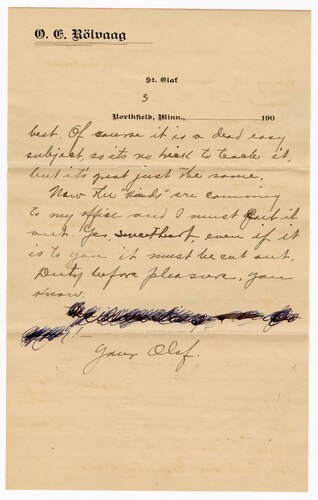 O. E. Rölvaag
St. Olaf
3
Northfield, Minn., 190
best. Of course it is a dead easy
subject, so its no trick to teach it,
but it's great just the same.
Now the "kids" are comming
to my office and I must cut it
out. Yes, sweetheart, even if it
is to you it must be cut out.
Duty before pleasure, you
know.
Your Olaf.